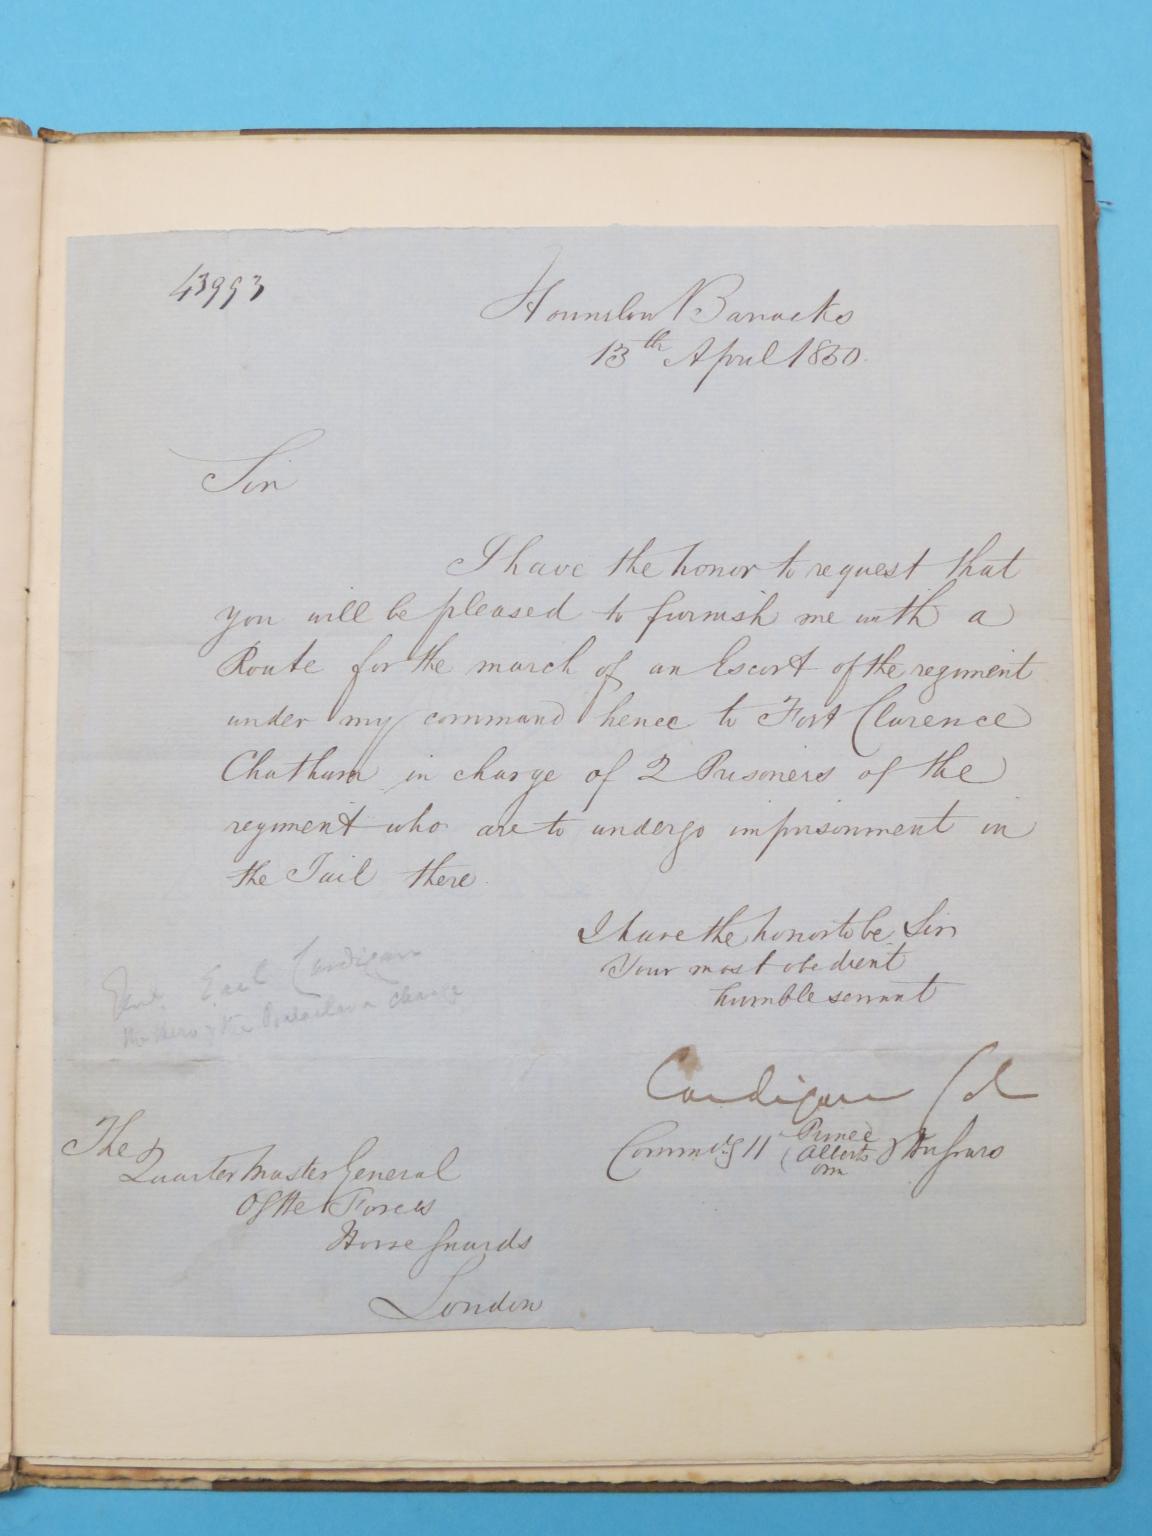 43993
Hounslow Barracks
13th April 1850.
Sir
I have the honor to request that
you will be pleased to furnish me with a
Route for the march of an Escort of the regiment
under my command hence to Fort Clarence
Chatham in charge of 2 Prisoners of the
regiment who are to undergo imprisonment in
the Jail there.
I have the honor to be Sir
Your most obedient
humble servant
Earl Cardigan
the Hero of the Balaclava Charge
Cardigan Col
Commdg 11 Prince Alberts own Hussars
The
Quarter Master General
Of the Forces
Horse Guards
London